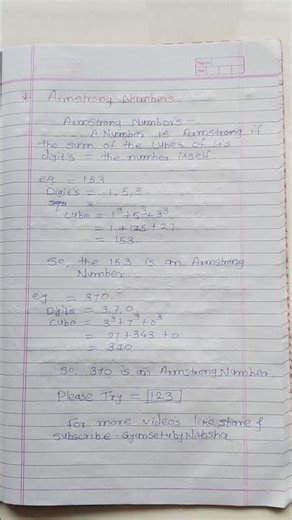 Armstrong Number's
Armstrong Number's -
A Number is Armstrong if
the sum of the cubes of its
digit's = the number itself
eg = 153
Digit's = 1, 5, 3
=
Cube = 1³+5³+3³
= 1+125+27
= 153
So, the 153 is an Armstrong
Number
eg = 370.
Digit's = 3,7,0
Cube = 3³+7³+0³
= 27+343+0
= 370
So, 370 is an Armstrong Number
Please Try = [123]
For more videos like share &
subscribe Gyansetuby